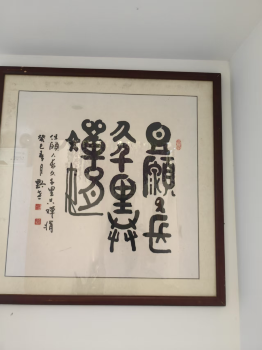 但願人長
久千里共
嬋娟
但願人長久千里共嬋娟
癸巳年月